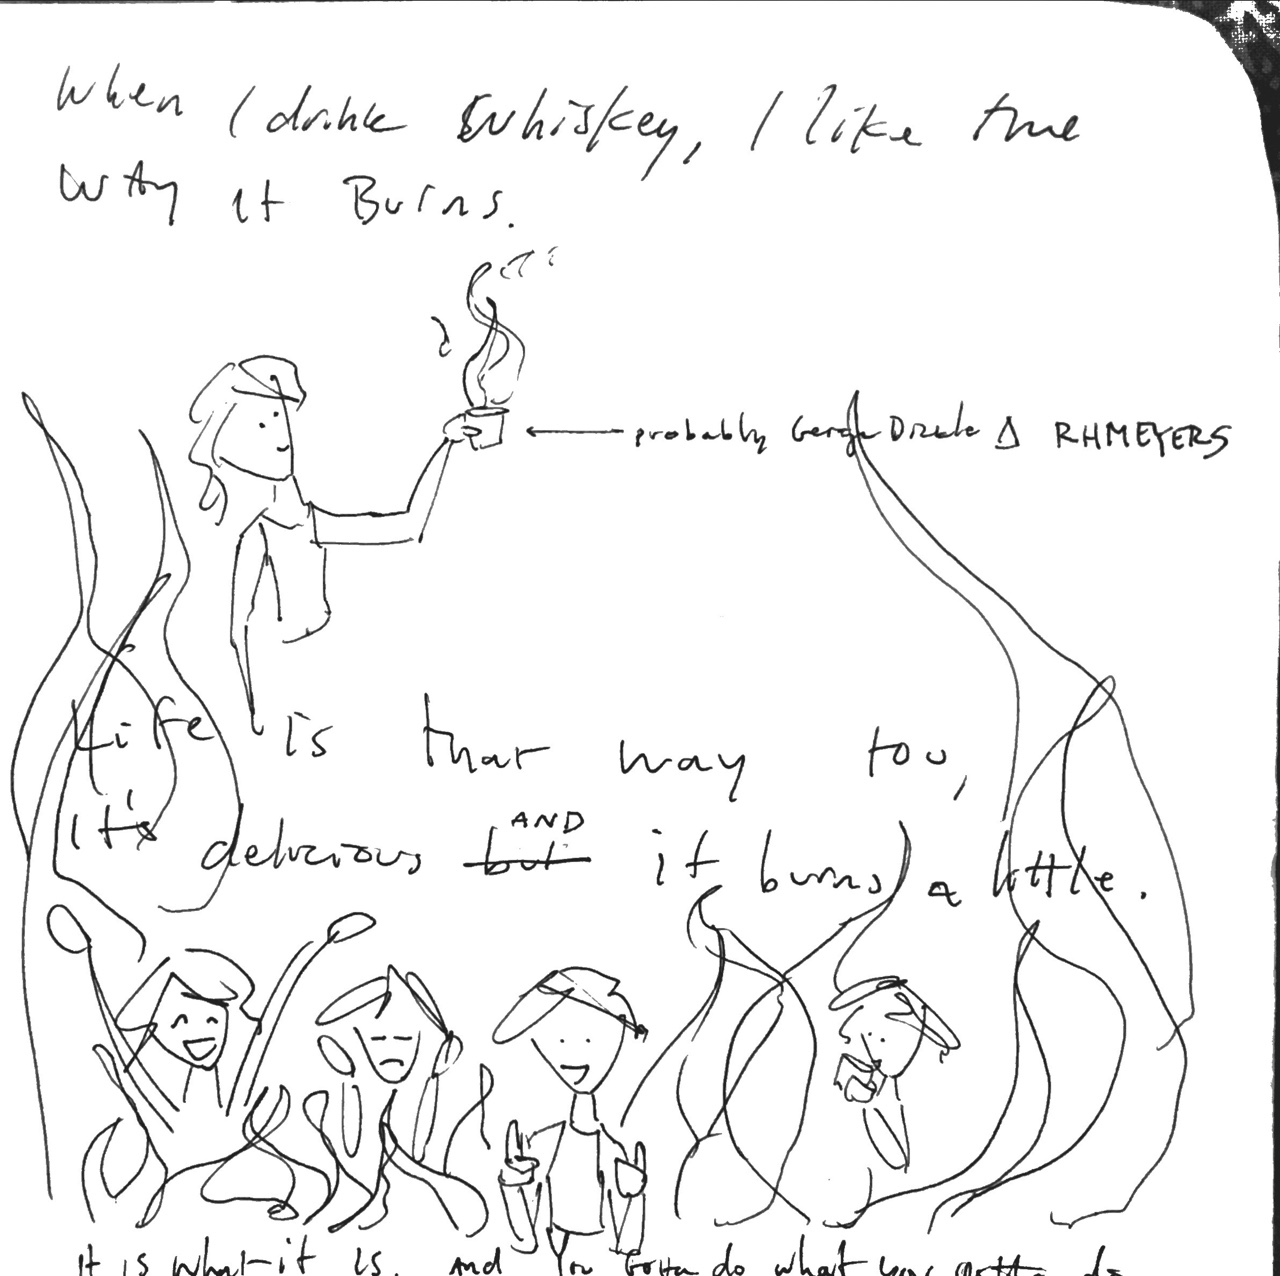 When I drink whiskey, I like the
way it Burns.
probably George Dickel Δ RHMEYERS
Life is that way too,
It's delicious but AND it burns a little.
It is what it is. And You Gotta do what you gotta do